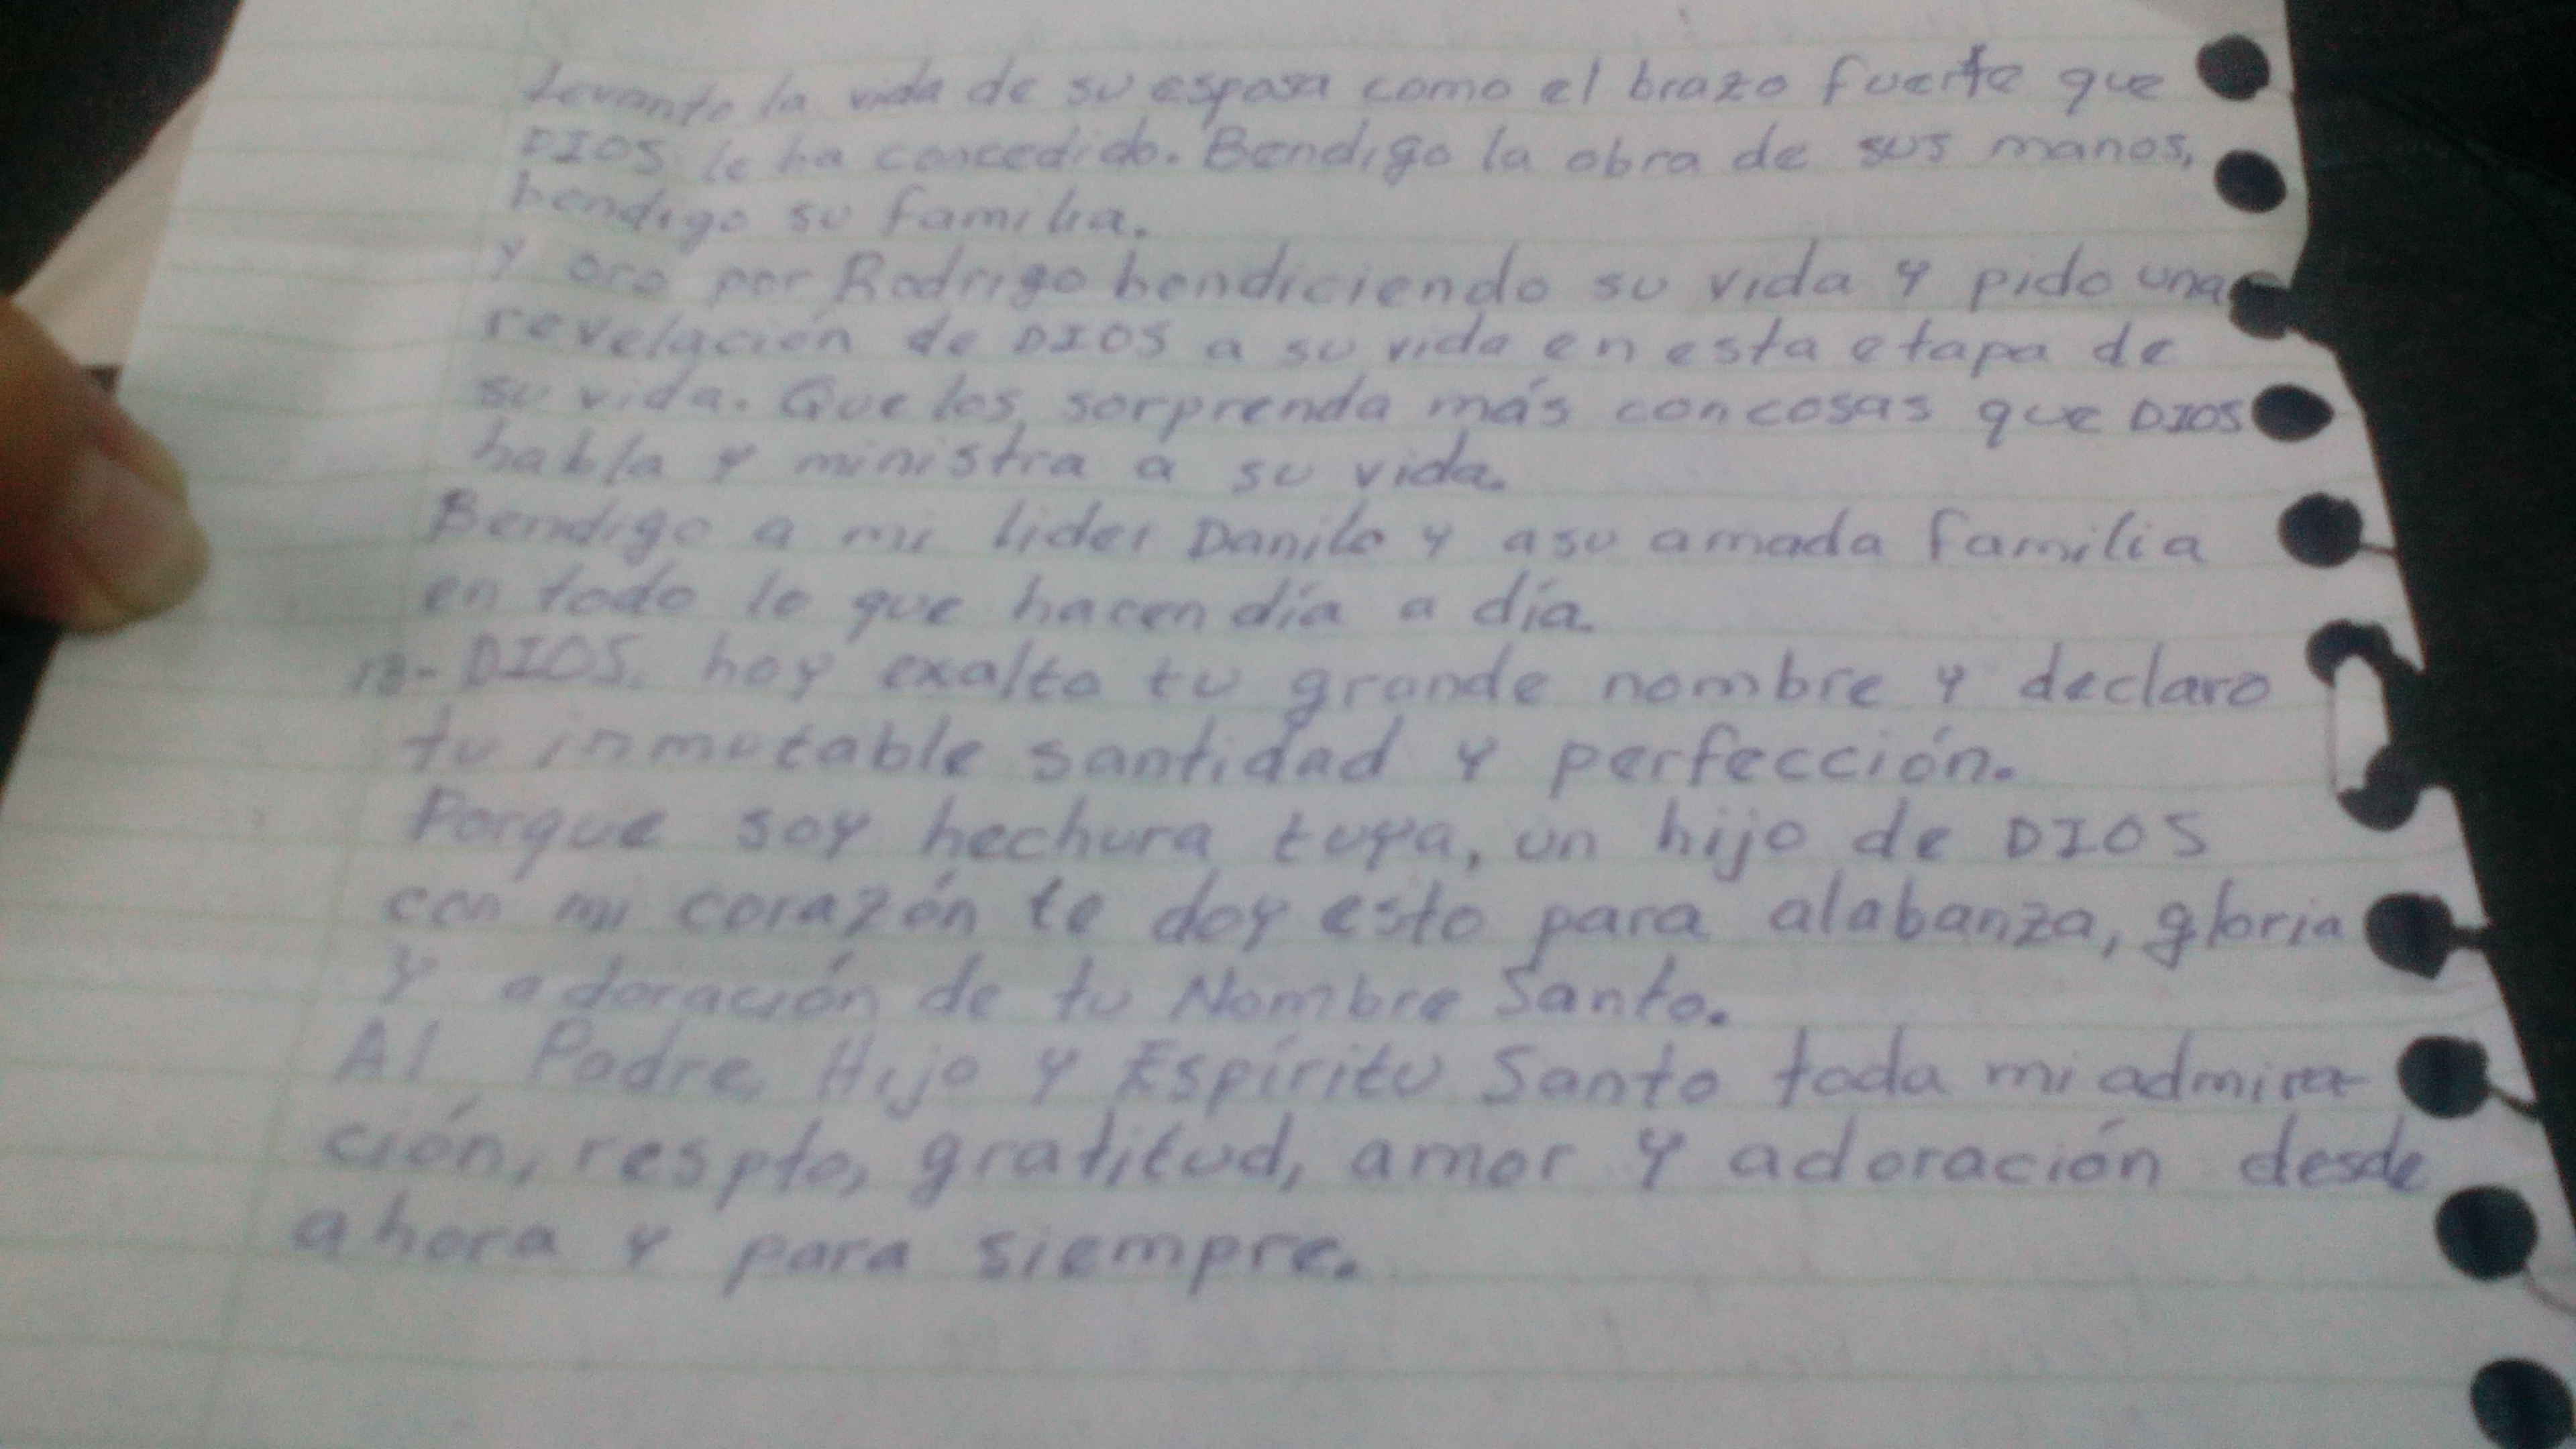 Levanto la vida de su esposa como el brazo fuerte que
DIOS le ha concedido. Bendigo la obra de sus manos,
bendigo su familia.
Y oro por Rodrigo bendiciendo su vida y pido una
revelación de DIOS a su vida en esta etapa de
su vida. Que los sorprenda más con cosas que DIOS
habla y ministra a su vida.
Bendigo a mi lider Danilo y a su amada familia
en todo lo que hacen día a día.
13- DIOS, hoy exalto tu grande nombre y declaro
tu inmutable santidad y perfección.
Porque soy hechura tuya, un hijo de DIOS
con mi corazón te doy esto para alabanza, gloria
y adoración de tu Nombre Santo.
Al Padre, Hijo y Espíritu Santo toda mi admira-
ción, respto, gratitud, amor y adoración desde
ahora y para siempre.